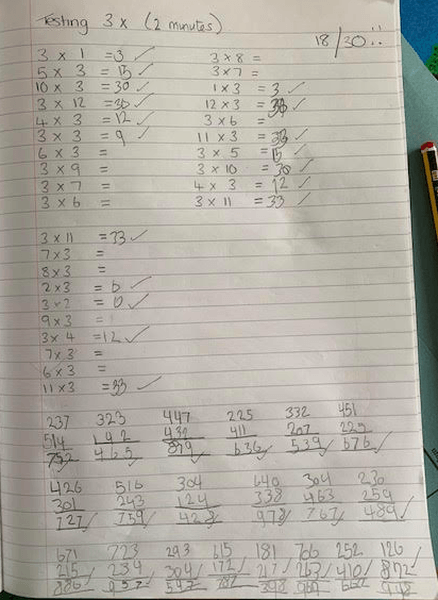 Testing 3 x (2 minutes)
18/30 :)
3 x 1 = 3 ✓
5 x 3 = 15 ✓
10 x 3 = 30 ✓
3 x 12 = 36 ✓
4 x 3 = 12 ✓
3 x 3 = 9 ✓
6 x 3 =
3 x 9 =
3 x 7 =
3 x 6 =
3 x 8 =
3 x 7 =
1 x 3 = 3 ✓
12 x 3 = ✓
3 x 6 =
11 x 3 = 33 ✓
3 x 5 = 15 ✓
3 x 10 = 30 ✓
4 x 3 = 12 ✓
3 x 11 = 33 ✓
3 x 11 = 33 ✓
7 x 3 =
8 x 3 =
2 x 3 = 6 ✓
3 x 2 = 6 ✓
9 x 3 =
3x 4 = 12 ✓
7x 3 =
6 x 3 =
11 x 3 = 33 ✓
237 323 447 225 332 451
514 142 432 411 207 225
465 879 636 539 676
426 516 304 640 304 230
301 243 124 338 463 259
727 759 428 978 767 489
671 723 293 615 181 706 252 126
215 234 304 172 217 263 410
886 957 597 787 398